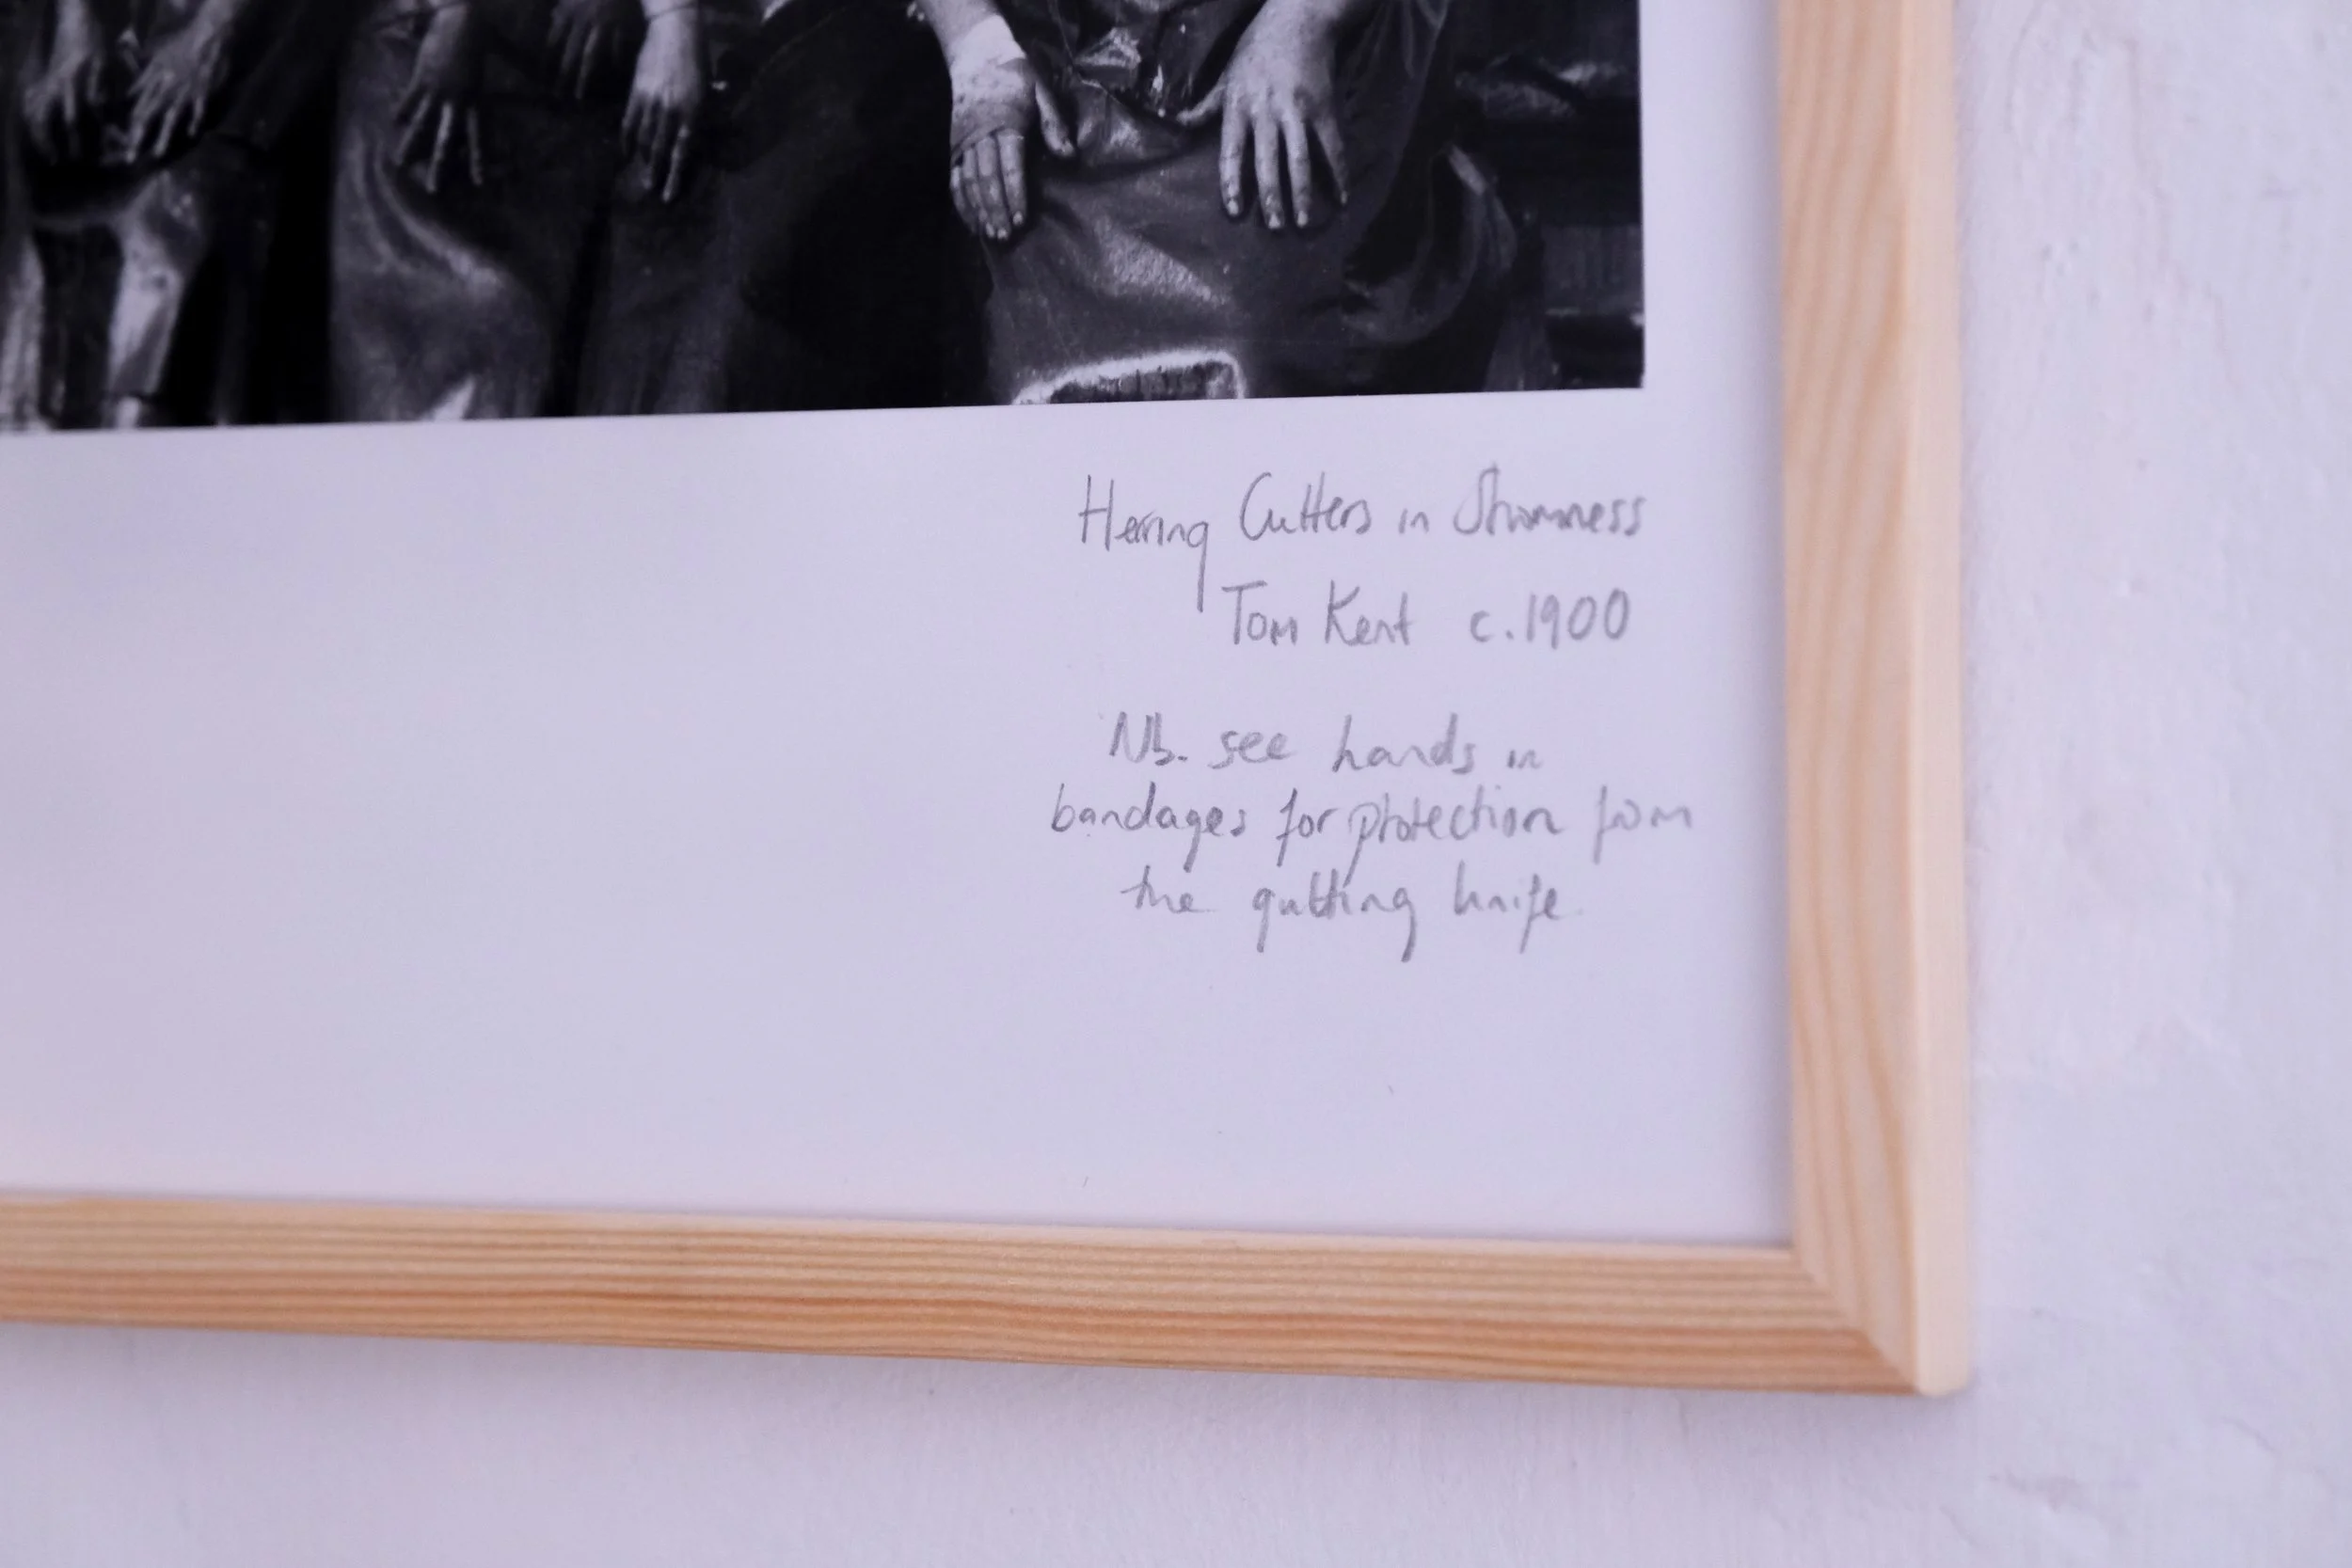 Herring Cutters in Stromness
Tom Kent c.1900
Nb. see hands in
bandages for protection from
the gutting knife